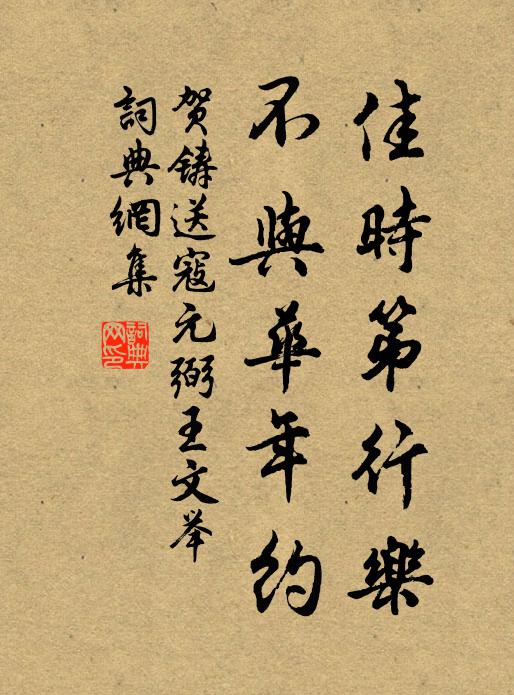 佳時第行樂
不與華年約
贺鑄送寇元弼王文举
詞典網集
詞典网印